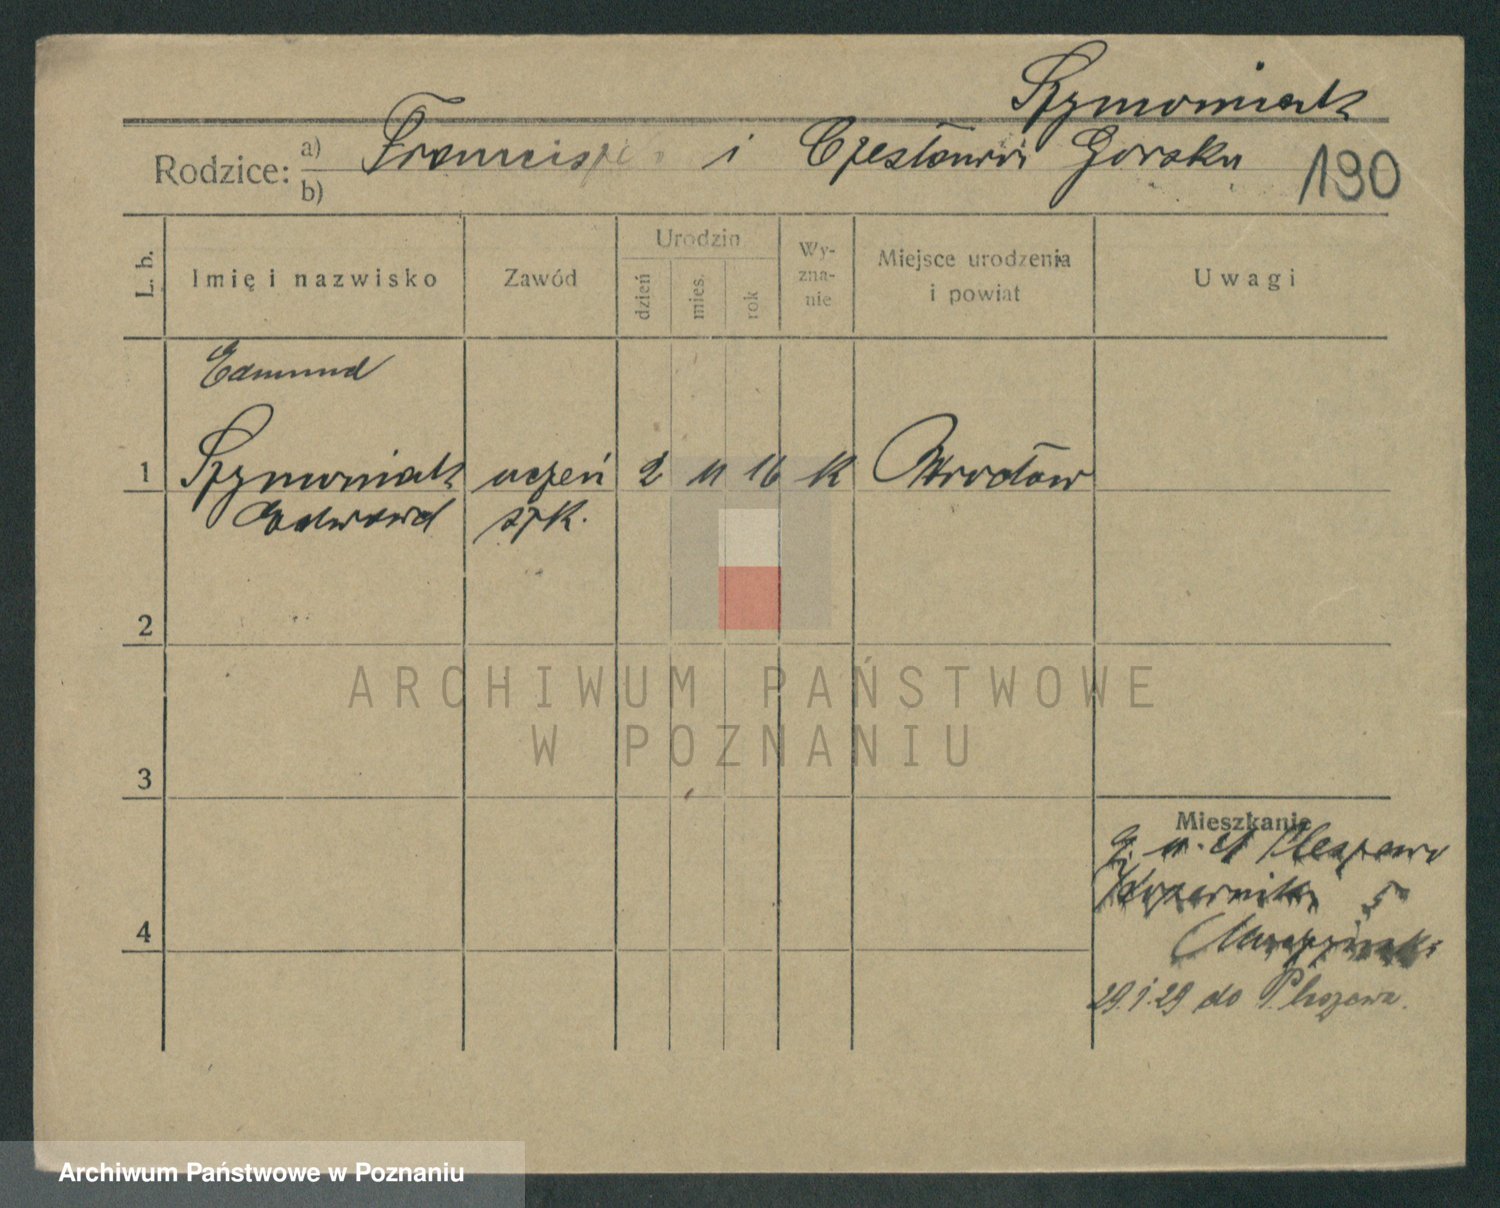 Szymoniak
Rodzice: a) Franciszek i Czesława Gorska
b)
190
L. b.
Imię i nazwisko
Zawód
Urodzin
dzień
mies.
rok
Wy-
zna-
nie
Miejsce urodzenia
i powiat
Uwagi
Edmund
1 Szymoniak uczeń 2 11 16 K
Edward szk.
2
3
4
Mieszkanie
5
29.1.29 do Pleszewa.
ARCHIWUM PAŃSTWOWE
W POZNANIU
Archiwum Państwowe w Poznaniu